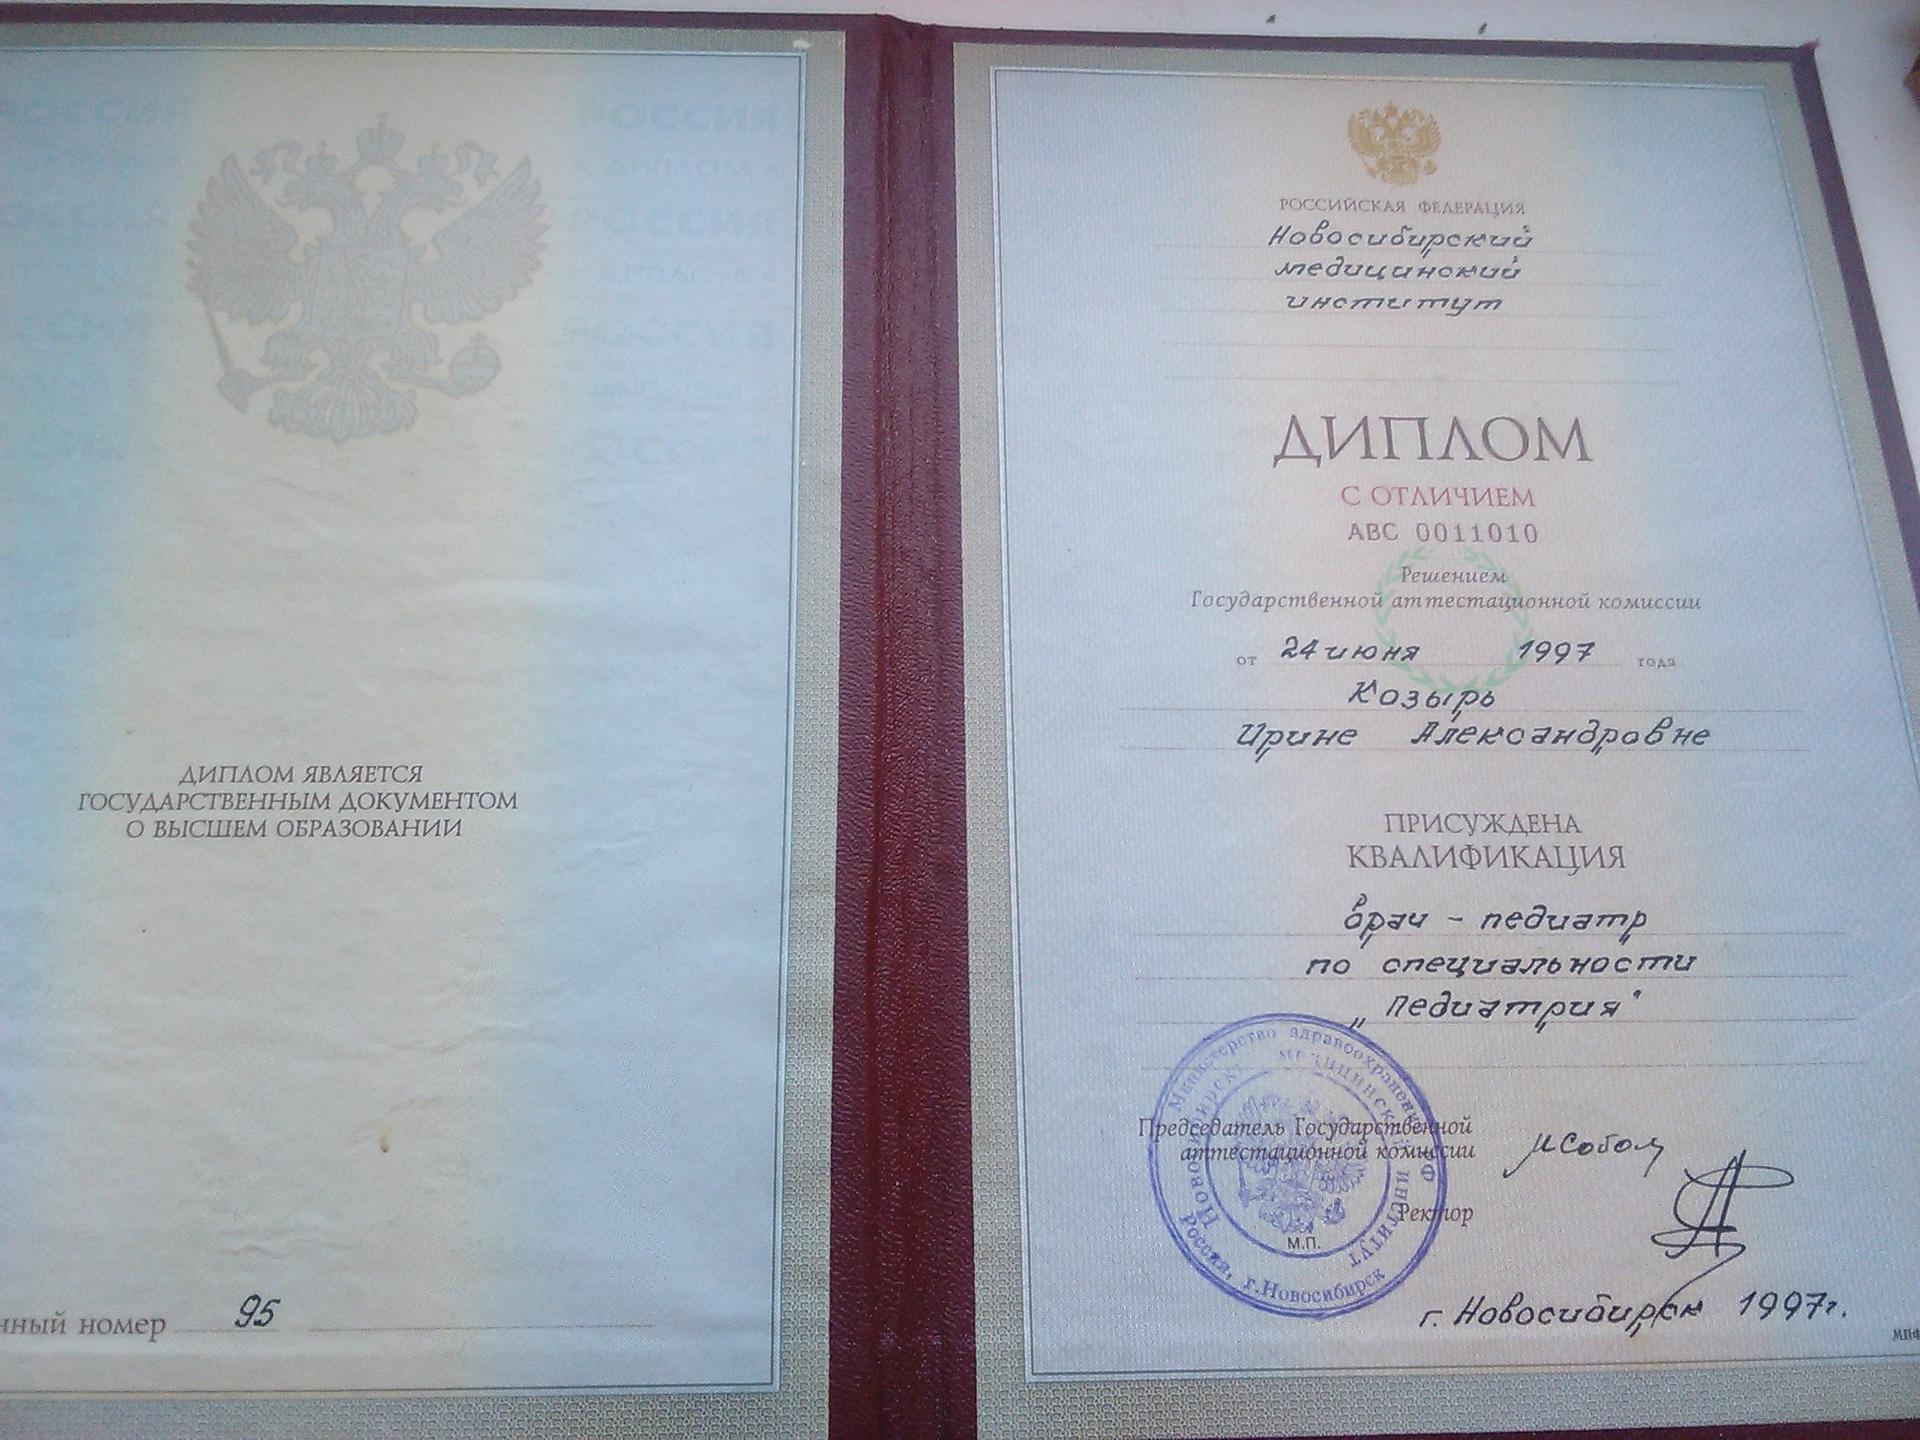 РОССИЯ
РОССИЯ
ДИПЛОМ
РОССИЯ
РОССИЯ
ДИПЛОМ ЯВЛЯЕТСЯ
ГОСУДАРСТВЕННЫМ ДОКУМЕНТОМ
О ВЫСШЕМ ОБРАЗОВАНИИ
нный номер 95
РОССИЙСКАЯ ФЕДЕРАЦИЯ
Новосибирский
медицинский
институт
ДИПЛОМ
С ОТЛИЧИЕМ
АВС 0011010
Решением
Государственной аттестационной комиссии
от 24 июня 1997 года
Козырь
Ирине Александровне
ПРИСУЖДЕНА
КВАЛИФИКАЦИЯ
врач - педиатр
по специальности
„Педиатрия"
Министерство здравоохранения РФ
Новосибирский медицинский институт
Россия, г.Новосибирск
Председатель Государственной
аттестационной комиссии
Ректор
М.П.
г. Новосибирск 1997г.